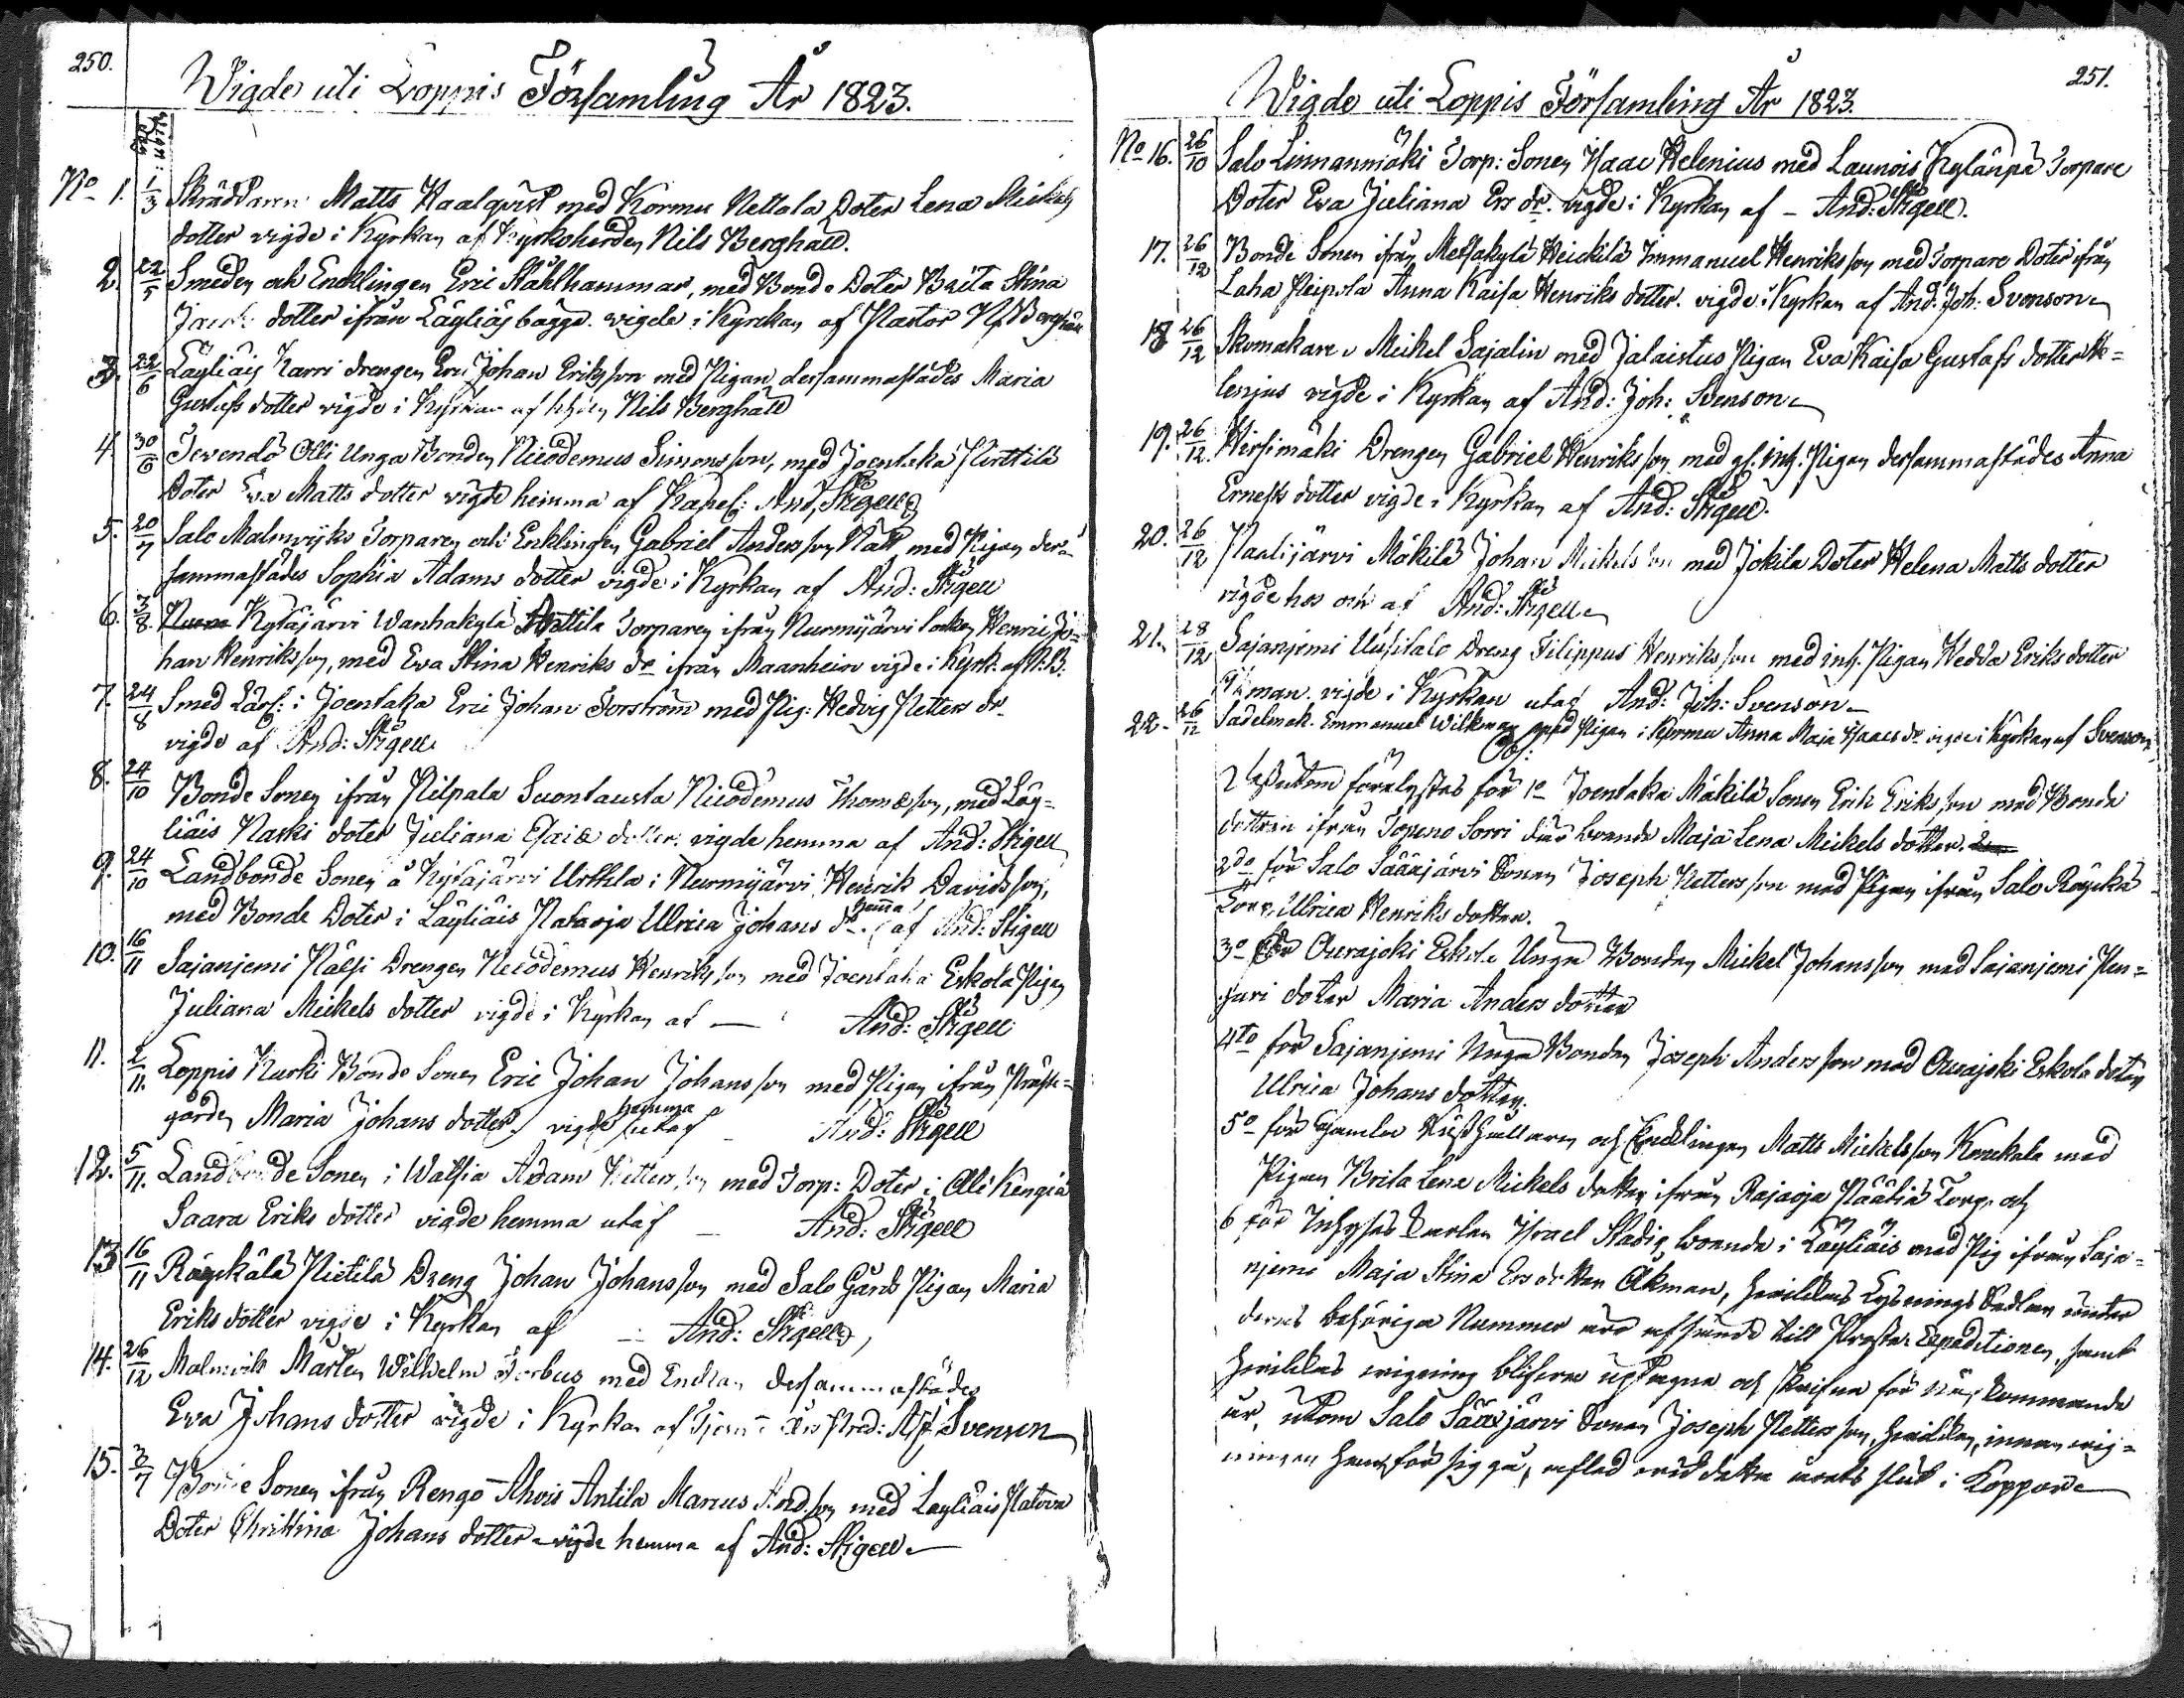 250.
Wigde uti Loppis Församling År 1823.
No 1. 1/3 Skräddaren Matts Haalqvist med Kormu Nettala Doter Lena Mickels
dotter vigde i Kyrkan af Kyrkoherden Nils Berghäll.
2. 22/5 Smeden och Encklingen Eric Ståhlhammar, med Bonde Doter Brita Stina
dotter ifrån Läyliäis bägge. vigde i Kyrckan af Pastor N. Berghäll
3. 22/6 Läyliäis Harri drengen Eric Johan Eriksson med Pigan dersammastädes Maria
Gustafs dotter vigde i Kyrkan af Nils Berghäll
4. 30/6 Tevendö Olli Unga Bonden Nicodemus Simonsson, med Joentaka Pirttilä
Doter Eva Matts dotter vigde hemma af Kapel: And: Stigell
5. 20/7 Salo Malmvijks Torparen och Enklingen Gabriel Andersson Nätt, med Pigan der-
sammastädes Sophia Adams dotter vigde i Kyrkan af And: Stigell
6. 3/8. Kytäjärvi Wanhakylä Anttila Torparen ifrån Nurmijärvi Socken Henric Jo-
han Henriksson, med Eva Stina Henriks dr ifrån Maanheim vigde i Kyrk: af N.B.
7. 24/8 Smed Lärl: i Joentaka Eric Johan Forström med Pig: Hedvig Petters dr
vigde af And: Stigell
8. 24/10 Bonde Sonen ifrån Pilpala Suontausta Nicodemus Thomæson, med Läy-
liäis Paski doter Juliana Esaiæ dotter. vigde hemma af And: Stigell
9. 24/10 Landbonde Sonen å Kytäjärvi Urttila i Nurmijärvi Henrik Davidsson,
med Bonde Doter i Läyliäis Pataoja Ulrica Johans dr. hemma af And: Stigell
10. 16/11 Sajanjemi Pälsi Drengen Nicodemus Henriksson med Joentaka Eskola Pigan
Juliana Mickels dotter vigde i Kyrkan af — And: Stigell
11. 2/11. Loppis Kurki Bonde Sonen Eric Johan Johansson med Pigan ifrån Präste-
gården Maria Johans dotter. vigde hemma utaf And: Stigell
12. 5/11. Landbonde Sonen i Watsia Adam Pettersson med Torp: Doter i Ali Kengiä
Saara Eriks dotter vigde hemma utaf — And: Stigell
13 16/11 Räyskälä Pietilä Dreng Johan Johansson med Salo Gårds Pigan Maria
Eriks dotter vigde i Kyrkan af — And: Stigell
14. 26/12 Malmvik Mårten Wilhelm Forbus med Enckan dersammastädes
Eva Johans dotter vigde i Kyrkan af Svenson
15. 3/7 Bonde Sonen ifrån Rengo Ahois Antila Marcus Andsson med Läyliäis
Doter Christina Johans dotter vigde hemma af And: Stigell
251.
Wigde uti Loppis Församling År 1823.
No 16. 26/10 Salo Linnanmäki Torp: Sonen Isaac Helenius med Launois Kylänpä Torpare
Doter Eva Juliana Ers dr. vigde i Kyrkan af - And: Stigell.
17. 26/12 Bonde Sonen ifrån Metsäkylä Heickilä Immanuel Henriksson med Torpare Doter ifrån
Laha Anna Kaisa Henriks dotter. vigde i Kyrkan af And: Joh: Svenson
18 26/12 Skomakare Mickel Sajalin med Jalaistus Pigan Eva Kaisa Gustafs dotter He-
lenius vigde i Kyrkan af And: Joh: Svenson
19. 26/12. Hirsimäki Drengen Gabriel Henriksson med gl. inh: Pigan dersammastädes Anna
Ernests dotter vigde i Kyrkan af And: Stigell.
20. 26/12 Paalijärvi Mäkilä Johan Mickelsson med Jokila Doter Helena Matts dotter
vigde hos och af And: Stigell
21. 28/12 Sajanjemi Uusitalo Dreng Filippus Henriksson med inh. Pigan Hedda Eriks dotter
Öhman. vigde i Kyrkan utaf And: Joh: Svenson
22. 26/12 Sadelmak. Emmanuel Willman med Pigan i Kormu Anna Maja Isaacs dr vigde i Kyrkan af Svenson
Obs:
Dessutom förelystes för 1o Joentaka Mäkilä Sonen Erik Eriksson med Bonde
dottren ifrån Topeno Sorri der boende Maja Lena Mickels dotter.
2do för Salo Sääxjärvi Sonen Joseph Pettersson med Pigan ifrån Salo Räyskä
Torp, Ulrica Henriks dotter.
3o för Ourajoki Eskola Unga Bonden Mickel Johansson med Sajanjemi Pen-
juri doter Maria Anders dotter
4to för Sajanjemi Unga Bonden Joseph Andersson med Ourajoki Eskola doter
Ulrica Johans dotter.
5o för Gamla Kusthållaren och Encklingen Matts Mickelsson Konckala med
Pigan Brita Lena Mickels dotter ifrån Rajaoja Torp. och
6 för Inhyses karlen Israel Stadig boende i Läyliäis med Pig ifrån Saja-
njemi Maja Stina Ers dotter Åkman, hvilkas Lysnings Sedlar under
deras behöriga Nummer äro afsände till Prosten Expeditionen, samt
hvilkas vigning blifva uptagne och skrifna för näst kommande
år, utom Salo Sääxjärvi Sonen Joseph Pettersson, hvilken, innan vig-
ningen hann för sig gå, afled vid detta årets slut i Koppor